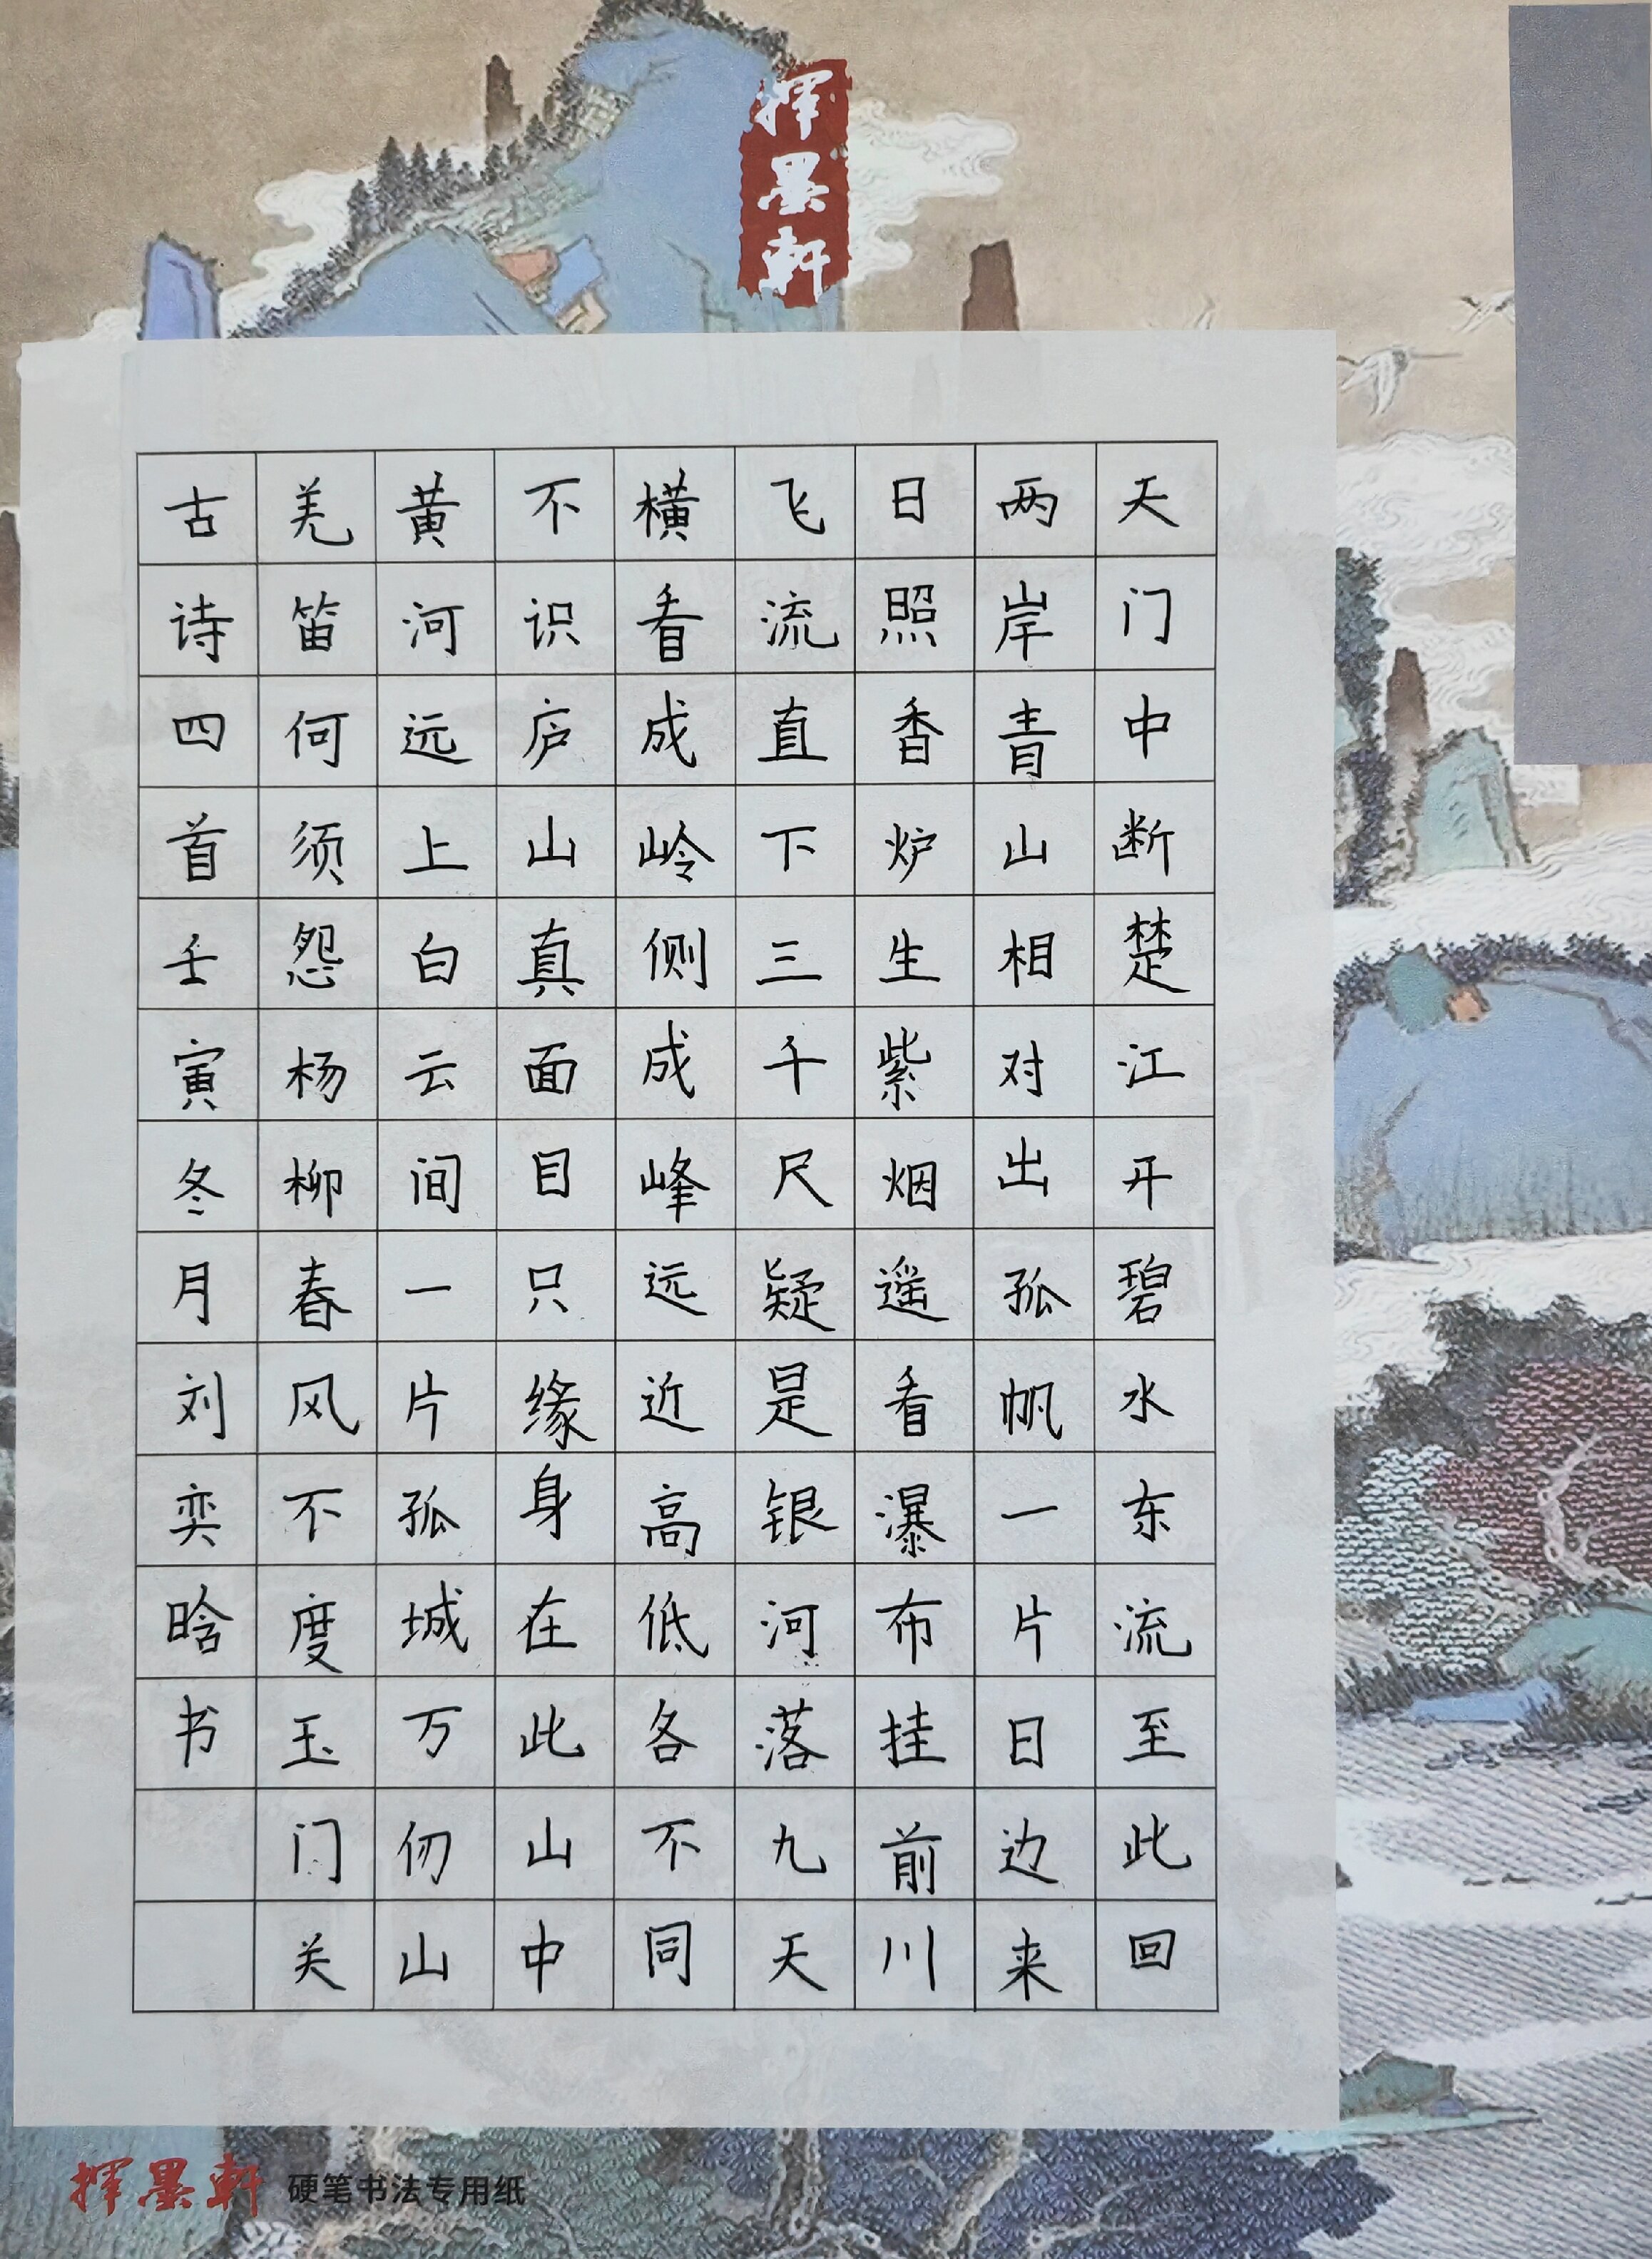 揮墨軒
天门中断楚江开碧水东流至此回
两岸青山相对出孤帆一片日边来
日照香炉生紫烟遥看瀑布挂前川
飞流直下三千尺疑是银河落九天
横看成岭侧成峰远近高低各不同
不识庐山真面目只缘身在此山中
黄河远上白云间一片孤城万仞山
羌笛何须怨杨柳春风不度玉门关
古诗四首壬寅冬月刘奕晗书
揮墨軒 硬笔书法专用纸